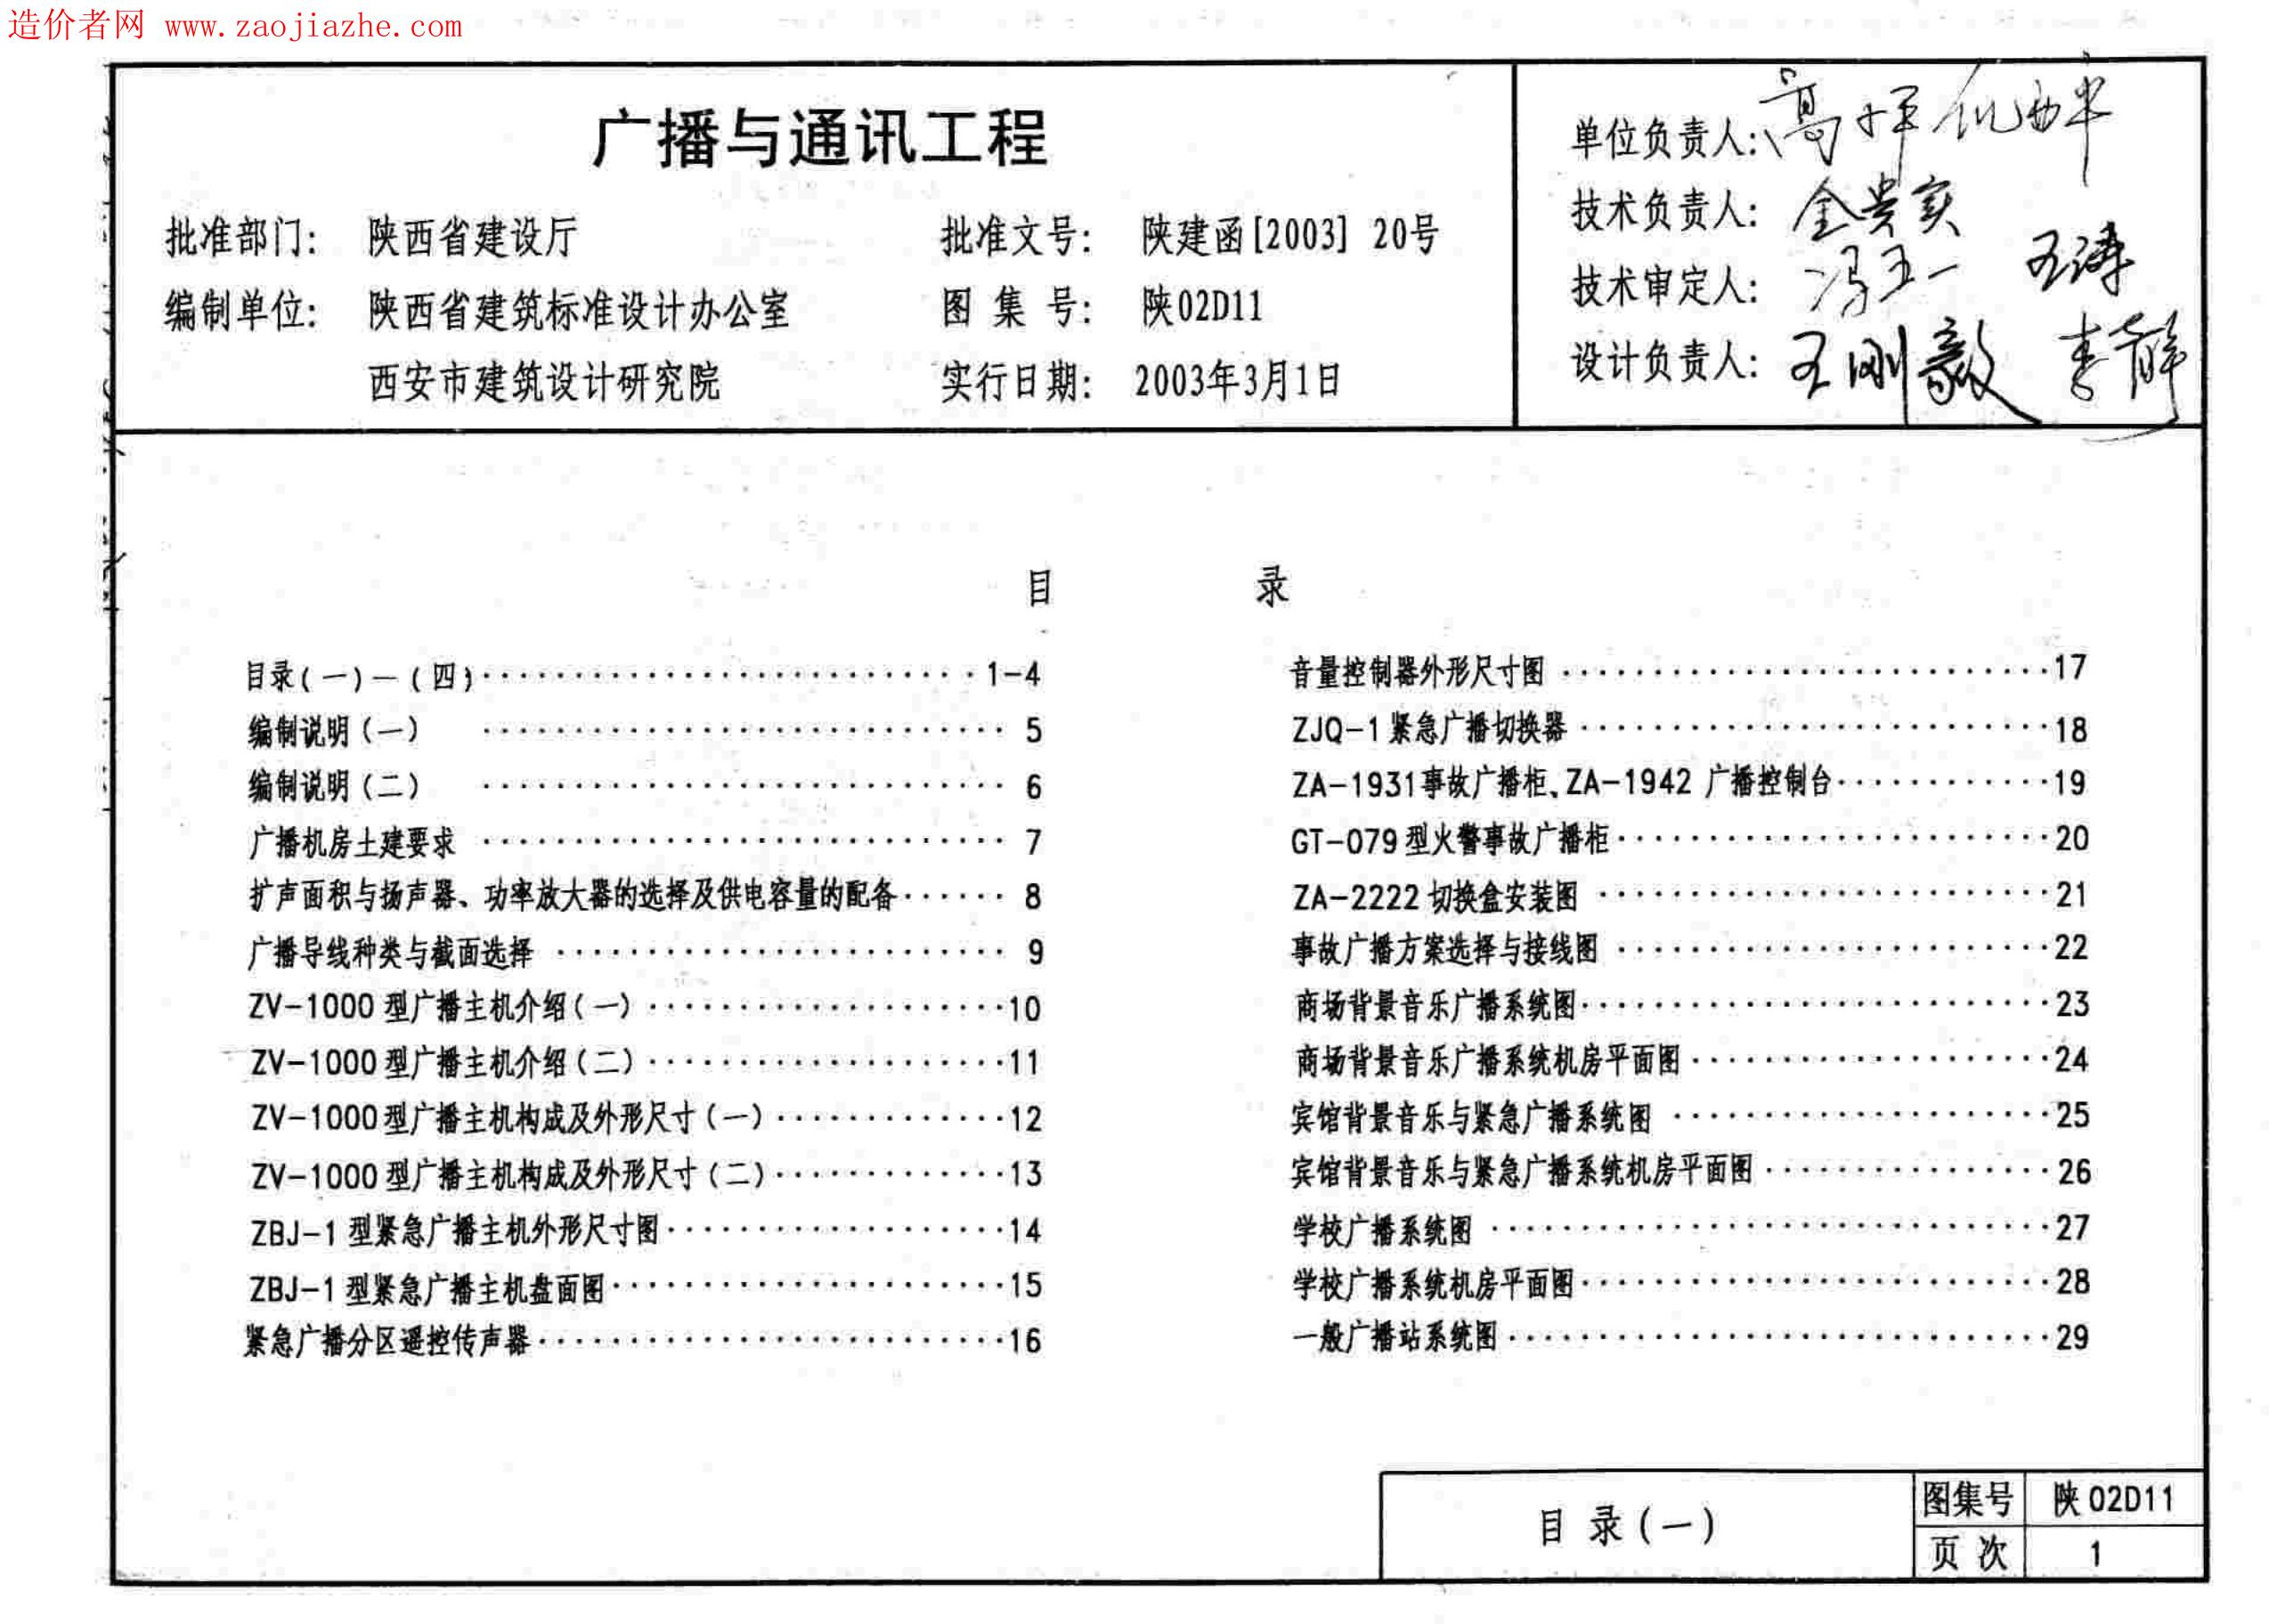 造价者网 www.zaojiazhe.com
广播与通讯工程
批准部门: 陕西省建设厅 批准文号: 陕建函[2003] 20号
编制单位: 陕西省建筑标准设计办公室 图 集 号: 陕02D11
西安市建筑设计研究院 实行日期: 2003年3月1日
单位负责人:
技术负责人: 金贵实
技术审定人: 冯五一 王涛
设计负责人: 王刚毅 李静
目 录
目录(一)—(四)····························1-4
编制说明(一) ····························· 5
编制说明(二) ····························· 6
广播机房土建要求 ····························· 7
扩声面积与扬声器、功率放大器的选择及供电容量的配备······ 8
广播导线种类与截面选择 ························· 9
ZV-1000型广播主机介绍(一)····················10
ZV-1000型广播主机介绍(二)····················11
ZV-1000型广播主机构成及外形尺寸(一)·············12
ZV-1000型广播主机构成及外形尺寸(二)·············13
ZBJ-1型紧急广播主机外形尺寸图···················14
ZBJ-1型紧急广播主机盘面图······················15
紧急广播分区遥控传声器··························16
音量控制器外形尺寸图 ···························17
ZJQ-1紧急广播切换器 ··························18
ZA-1931事故广播柜、ZA-1942 广播控制台············19
GT-079型火警事故广播柜························20
ZA-2222切换盒安装图 ·························21
事故广播方案选择与接线图 ························22
商场背景音乐广播系统图··························23
商场背景音乐广播系统机房平面图····················24
宾馆背景音乐与紧急广播系统图 ·····················25
宾馆背景音乐与紧急广播系统机房平面图················26
学校广播系统图 ·······························27
学校广播系统机房平面图··························28
一般广播站系统图······························29
目 录(一)
图集号 陕02D11
页 次 1